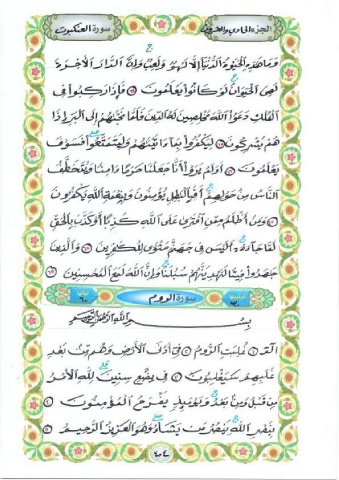 سورة العنكبوت الجزء الحادي والعشرون
وَمَا هَٰذِهِ الْحَيَوٰةُ الدُّنْيَا إِلَّا لَهْوٌ وَلَعِبٌ وَإِنَّ الدَّارَ الْآخِرَةَ
لَهِيَ الْحَيَوَانُ لَوْ كَانُوا يَعْلَمُونَ ٦٤ فَإِذَا رَكِبُوا فِي
الْفُلْكِ دَعَوُا اللَّهَ مُخْلِصِينَ لَهُ الدِّينَ فَلَمَّا نَجَّىٰهُمْ إِلَى الْبَرِّ إِذَا
هُمْ يُشْرِكُونَ ٦٥ لِيَكْفُرُوا بِمَا ءَاتَيْنَٰهُمْ وَلِيَتَمَتَّعُوا فَسَوْفَ
يَعْلَمُونَ ٦٦ أَوَلَمْ يَرَوْا أَنَّا جَعَلْنَا حَرَمًا ءَامِنًا وَيُتَخَطَّفُ
النَّاسُ مِنْ حَوْلِهِمْ أَفَبِالْبَٰطِلِ يُؤْمِنُونَ وَبِنِعْمَةِ اللَّهِ يَكْفُرُونَ
٦٧ وَمَنْ أَظْلَمُ مِمَّنِ افْتَرَىٰ عَلَى اللَّهِ كَذِبًا أَوْ كَذَّبَ بِالْحَقِّ
لَمَّا جَاءَهُ أَلَيْسَ فِي جَهَنَّمَ مَثْوًى لِلْكَٰفِرِينَ ٦٨ وَالَّذِينَ
جَٰهَدُوا فِينَا لَنَهْدِيَنَّهُمْ سُبُلَنَا وَإِنَّ اللَّهَ لَمَعَ الْمُحْسِنِينَ ٦٩
ترتيبها ٣٠ سورة الروم آياتها ٦٠
بِسْمِ اللَّهِ الرَّحْمَٰنِ الرَّحِيمِ
الٓمٓ ١ غُلِبَتِ الرُّومُ ٢ فِي أَدْنَى الْأَرْضِ وَهُمْ مِنْ بَعْدِ
غَلَبِهِمْ سَيَغْلِبُونَ ٣ فِي بِضْعِ سِنِينَ لِلَّهِ الْأَمْرُ
مِنْ قَبْلُ وَمِنْ بَعْدُ وَيَوْمَئِذٍ يَفْرَحُ الْمُؤْمِنُونَ ٤
بِنَصْرِ اللَّهِ يَنْصُرُ مَنْ يَشَاءُ وَهُوَ الْعَزِيزُ الرَّحِيمُ ٥
٤٠٤